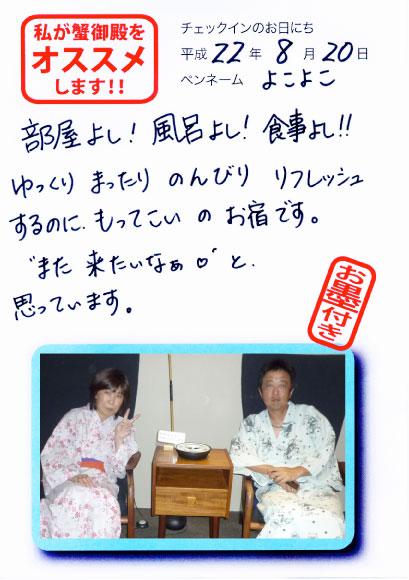 私が蟹御殿を
オススメ
します!!
チェックインのお日にち
平成 22 年 8 月 20 日
ペンネーム よこよこ
部屋よし! 風呂よし! 食事よし!!
ゆっくり まったり のんびり リフレッシュ
するのに、もってこい の お宿です。
"また 来たいなぁ♡" と、
思っています。
お墨付き